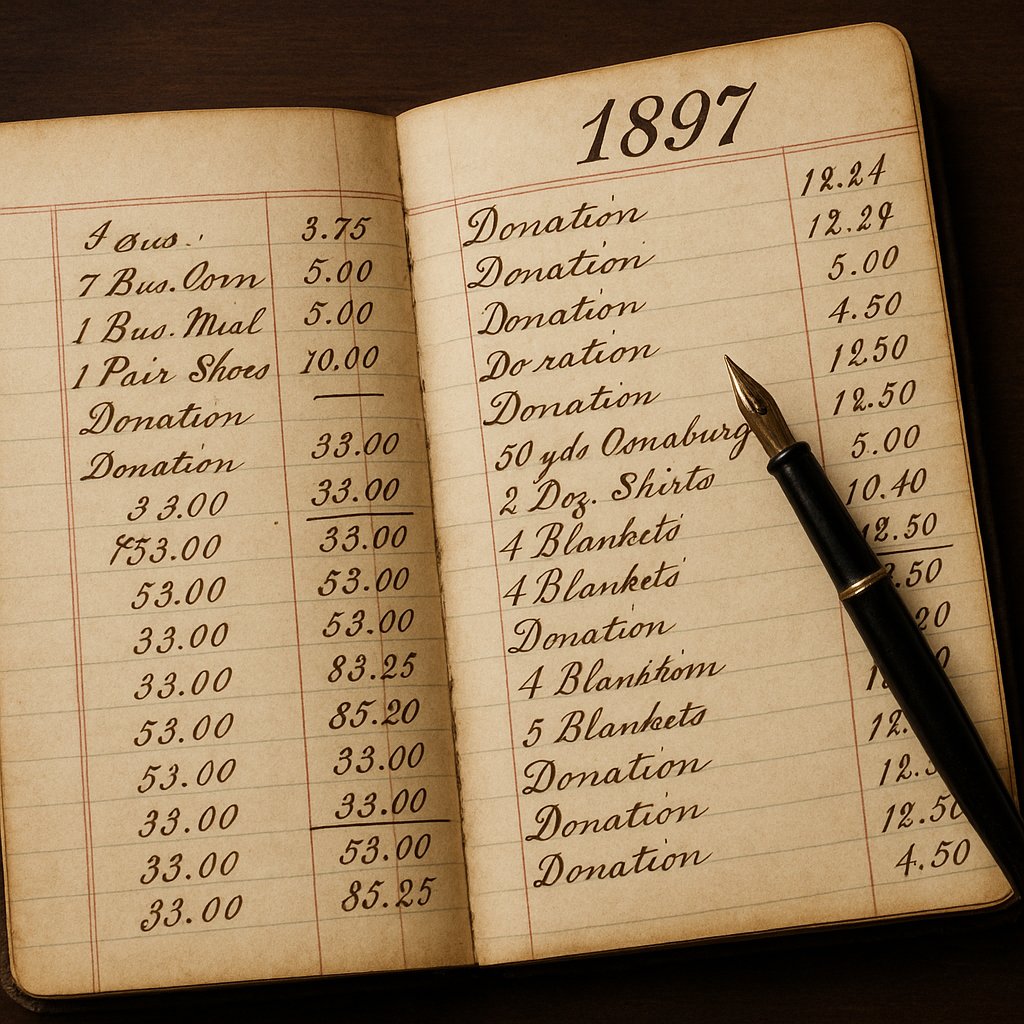 3.75
7 Bus. Corn 5.00
1 Bus. Mial 5.00
1 Pair Shoes 10.00
Donation
Donation 33.00
33.00 33.00
53.00 33.00
53.00 53.00
33.00 53.00
33.00 83.25
53.00 85.20
53.00 33.00
33.00 33.00
33.00 53.00
33.00 85.25
1897
Donation 12.24
Donation 12.29
Donation 5.00
Do ration 4.50
Donation 12 50
50 yds Osnaburg 12.50
2 Doz. Shirts 5.00
4 Blankets 10.40
4 Blankets 12.50
Donation .50
4 20
5 Blankets
Donation 12.
Donation
Donation 12.50
4.50